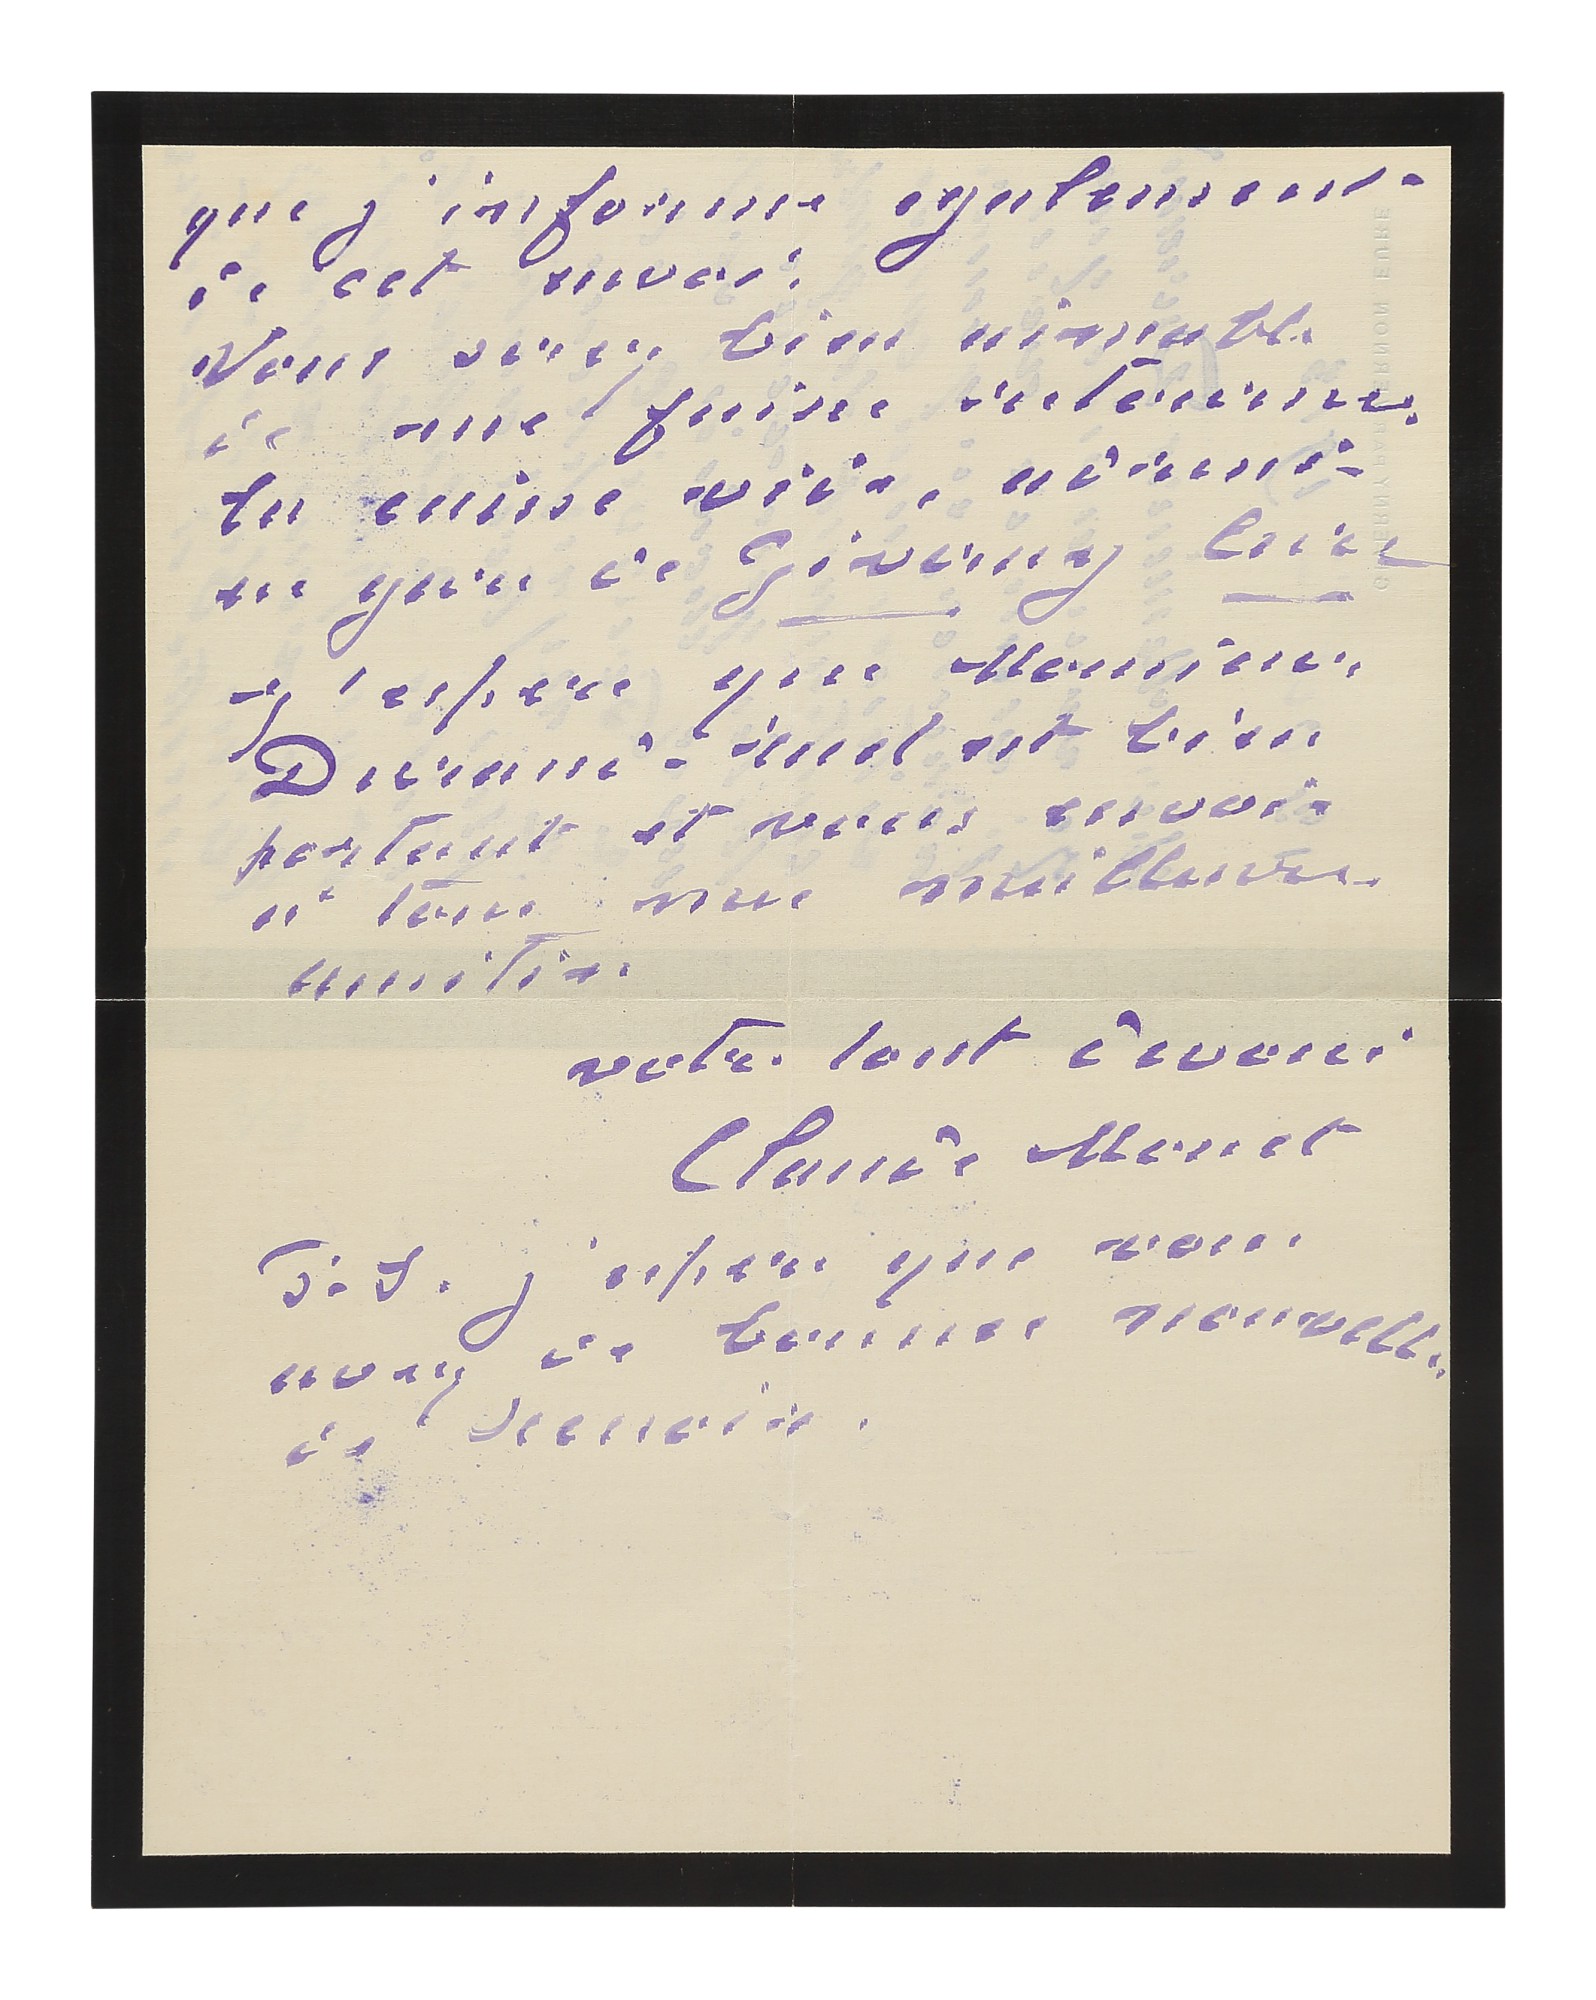 que j'informe egalement
de cet envoi.
Vous serez bien aimable
de me faire retourner
la caisse vide, adressée
en gare de Giverny Eure
J'espere que Monsieur
Durand-Ruel est bien
portant et vous envoie
à tous mes meilleures
amitiés.
votre tout dévoué
Claude Monet
P.S. j'espere que vous
avez de bonnes nouvelles
de Renoir.
GIVERNY PAR VERNON EURE